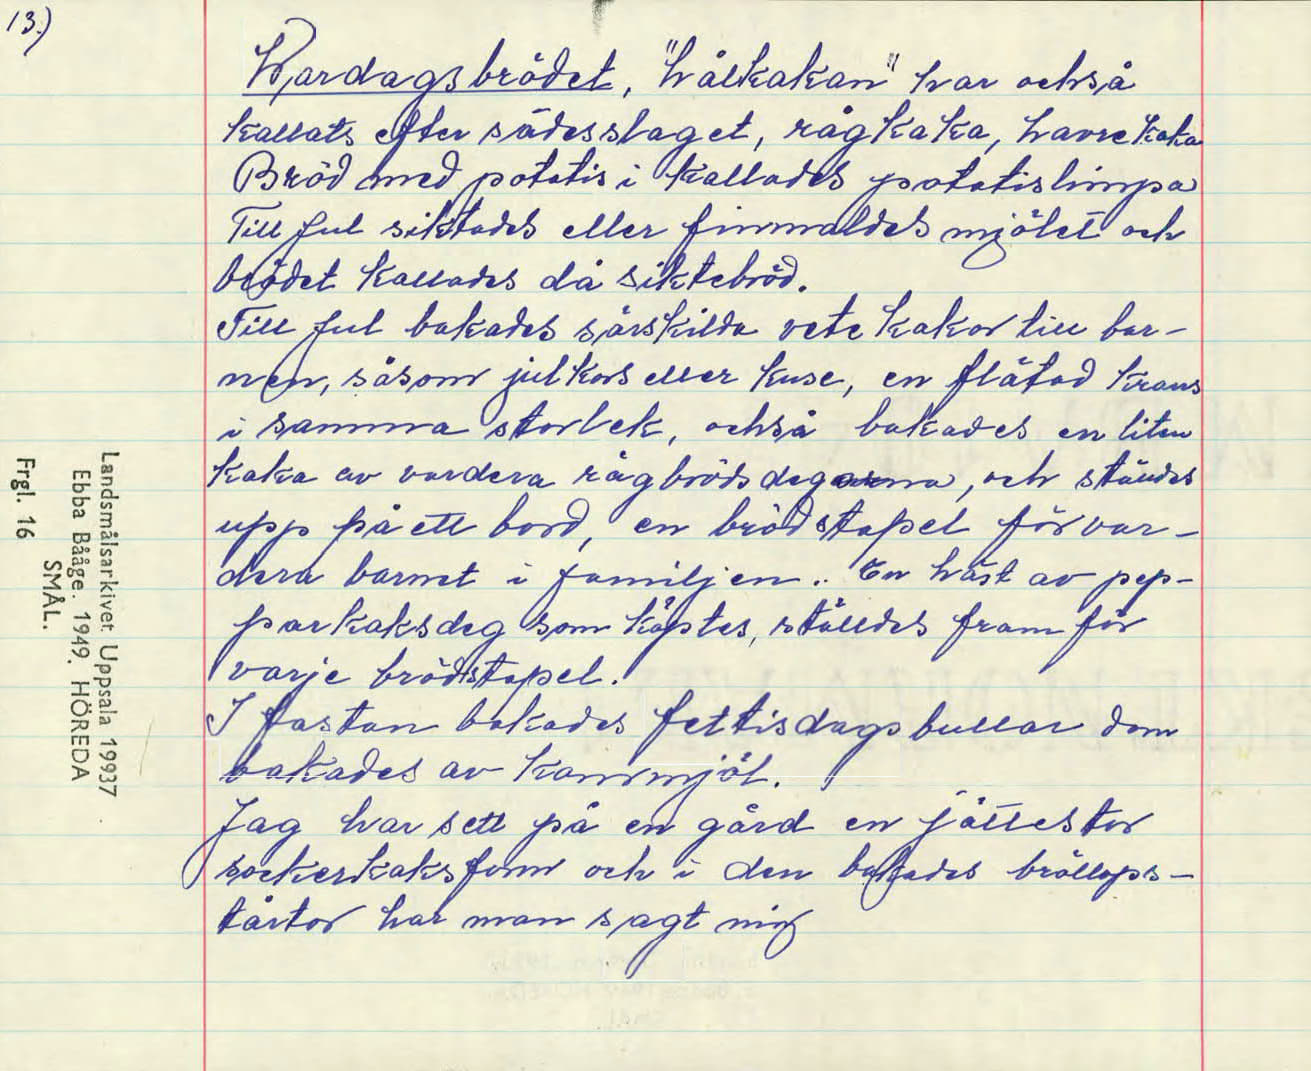 13.)
Wardagsbrödet, "hålkakan" har också
kallats efter sädesslaget, rågkaka, havrekaka
Bröd med potatis i kallades potatislimpa
Till jul siktades eller finmaldes mjölet och
brödet kallades då siktebröd.
Till jul bakades särskilda vetekakor till bar-
nen, såsom julkors eller kuse, en flätad krans
i samma storlek, också bakades en liten
kaka av vardera rågbrödsdegarna, och ställdes
upp på ett bord, en brödstapel för var-
dera barnet i familjen. En häst av pep-
parkaksdeg som köptes, ställdes fram för
varje brödstapel.
I fastan bakades fettisdagsbullar dom
bakades av kornmjöl.
Jag har sett på en gård en jättestor
sockerkaksform och i den bakades bröllops-
tårtor har man sagt mig
Landsmålsarkivet Uppsala 19937
Ebba Bååge. 1949. HÖREDA
SMÅL.
Frgl. 16